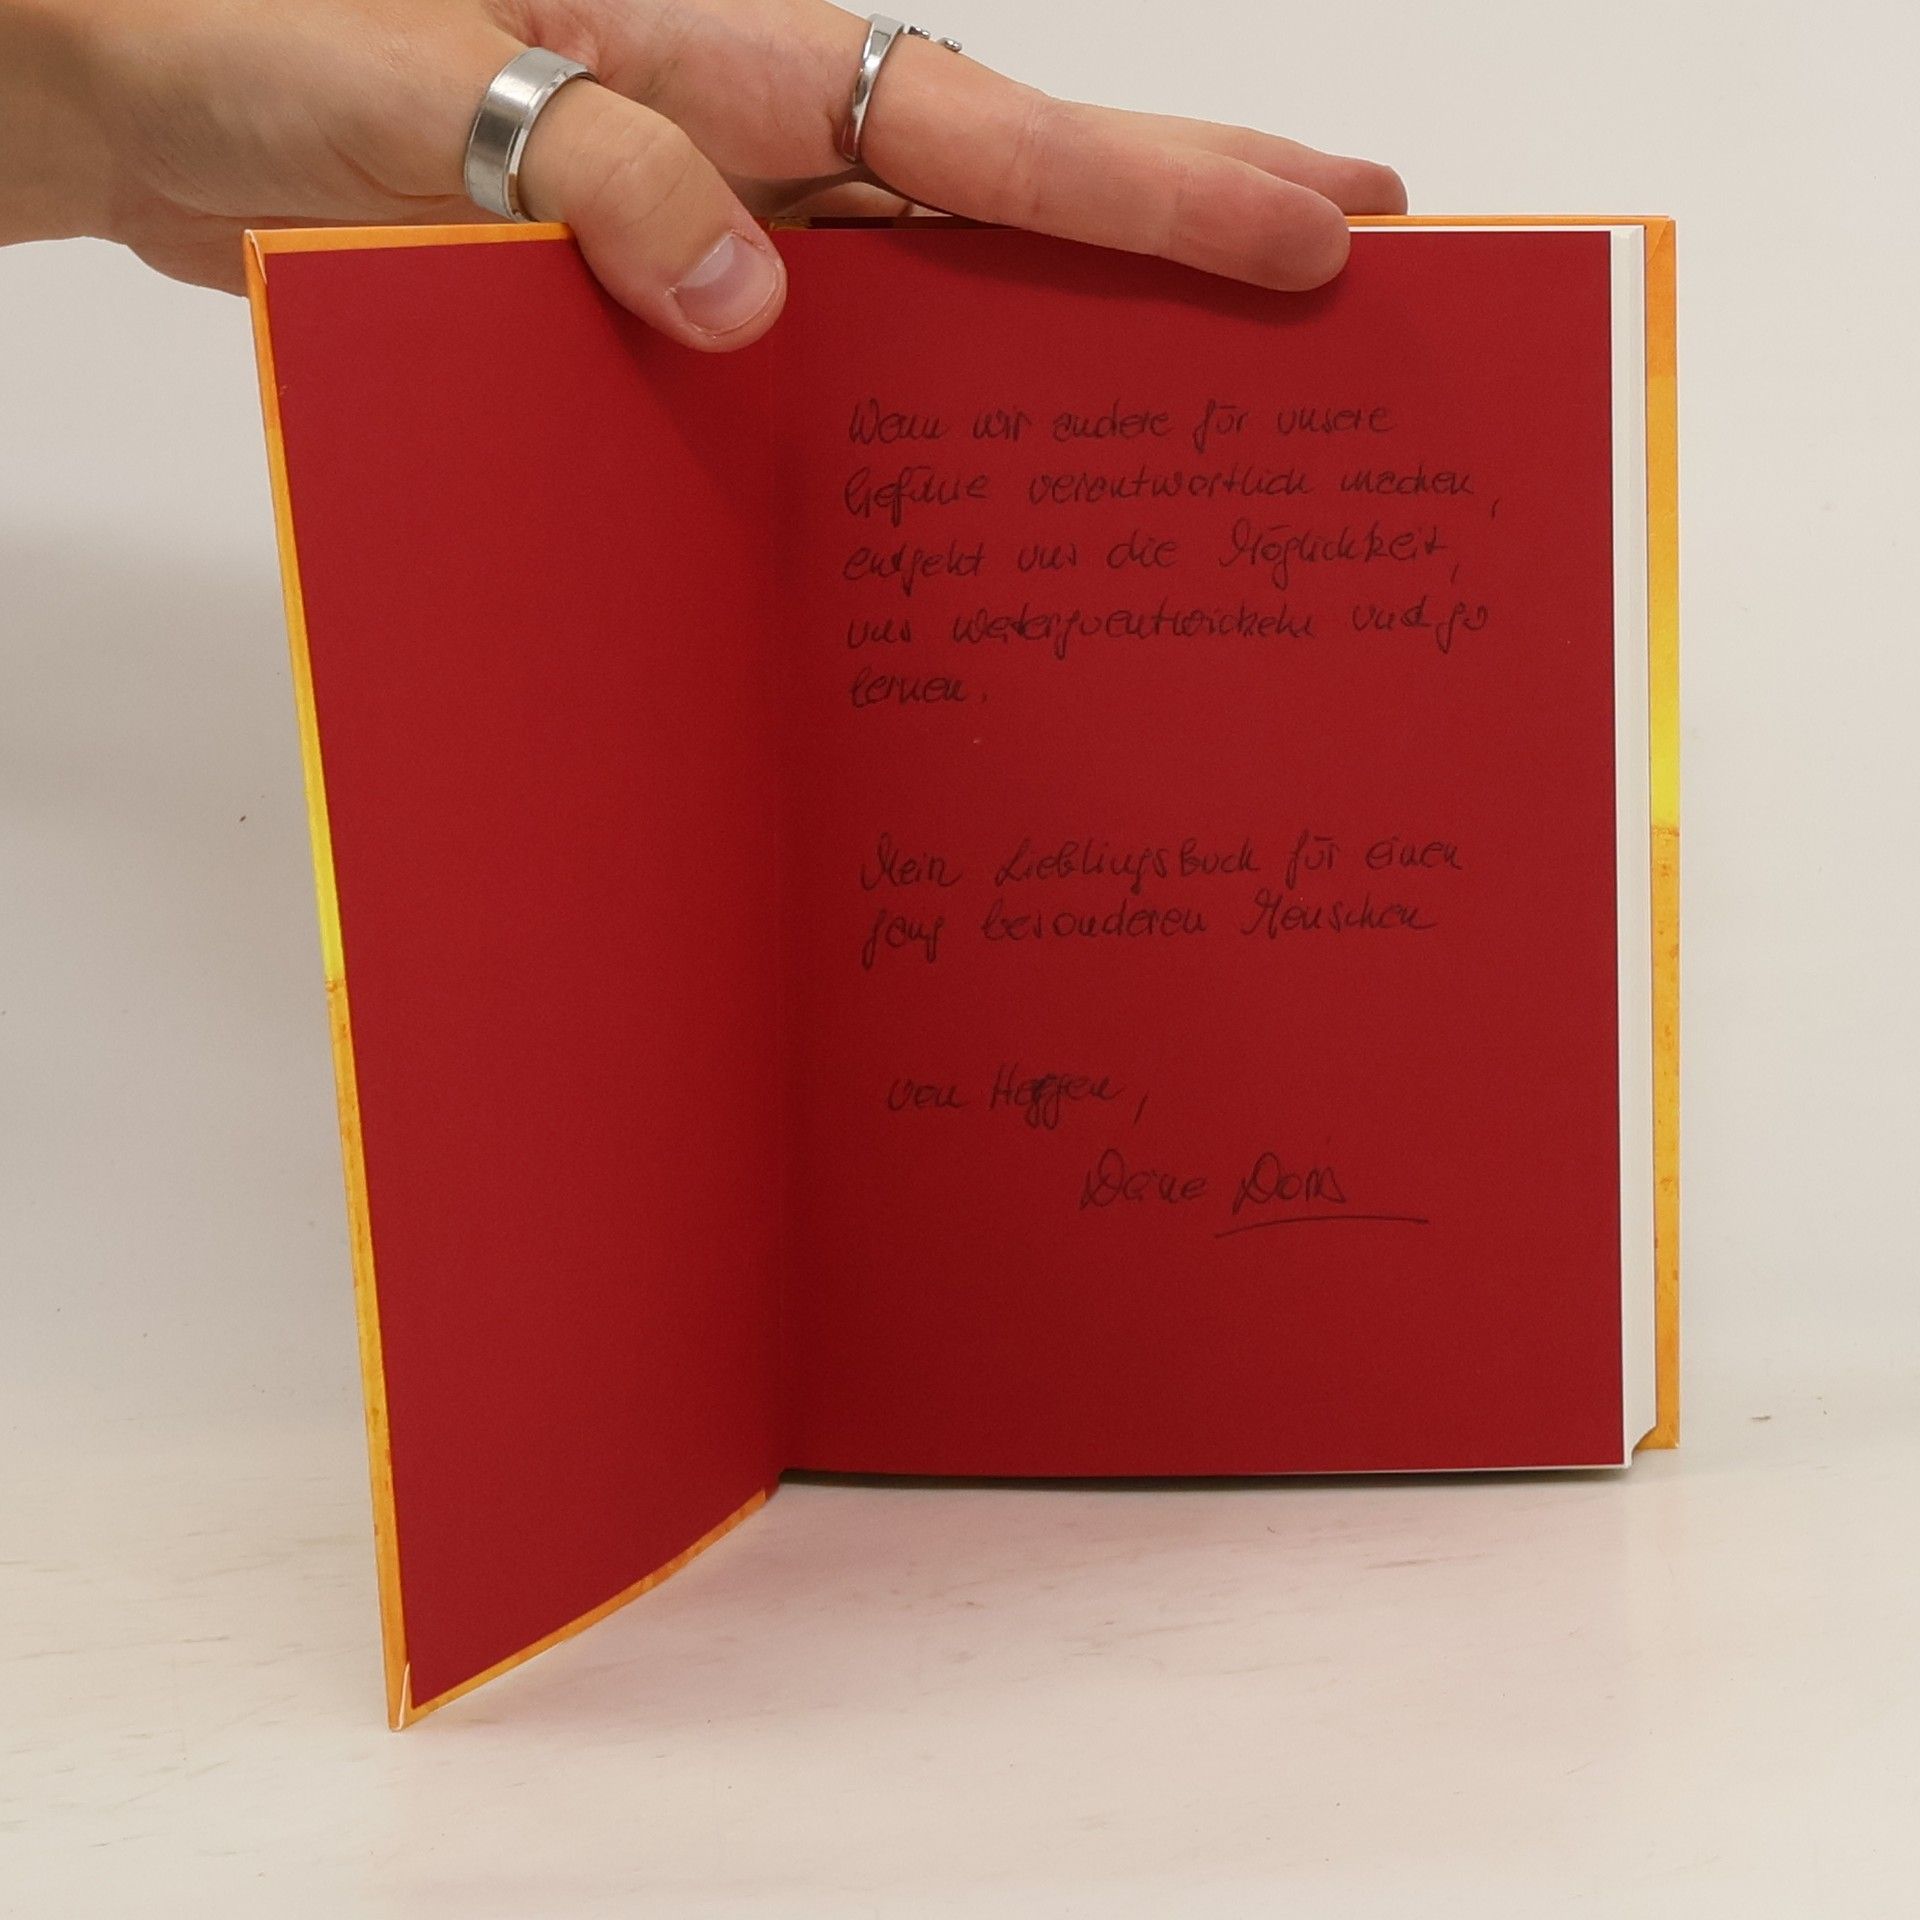 Wenn wir andere für unsere
Gefühle verantwortlich machen,
entgeht uns die Möglichkeit,
uns weiterzuentwickeln und zu
lernen.
Mein Lieblingsbuch für einen
ganz besonderen Menschen
von Herzen,
Deine Doris